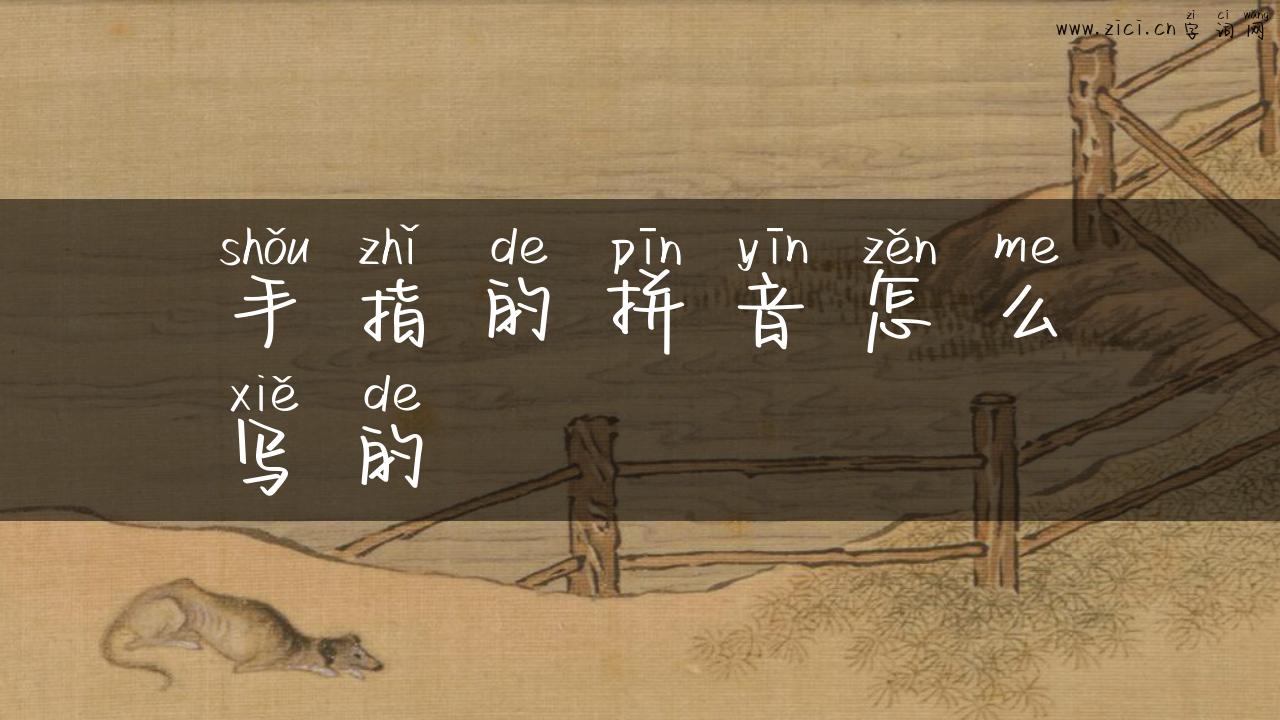 zi ci wang
www.zici.cn 字词网
shǒu zhǐ de pīn yīn zěn me
手指的拼音怎么
xiě de
写的